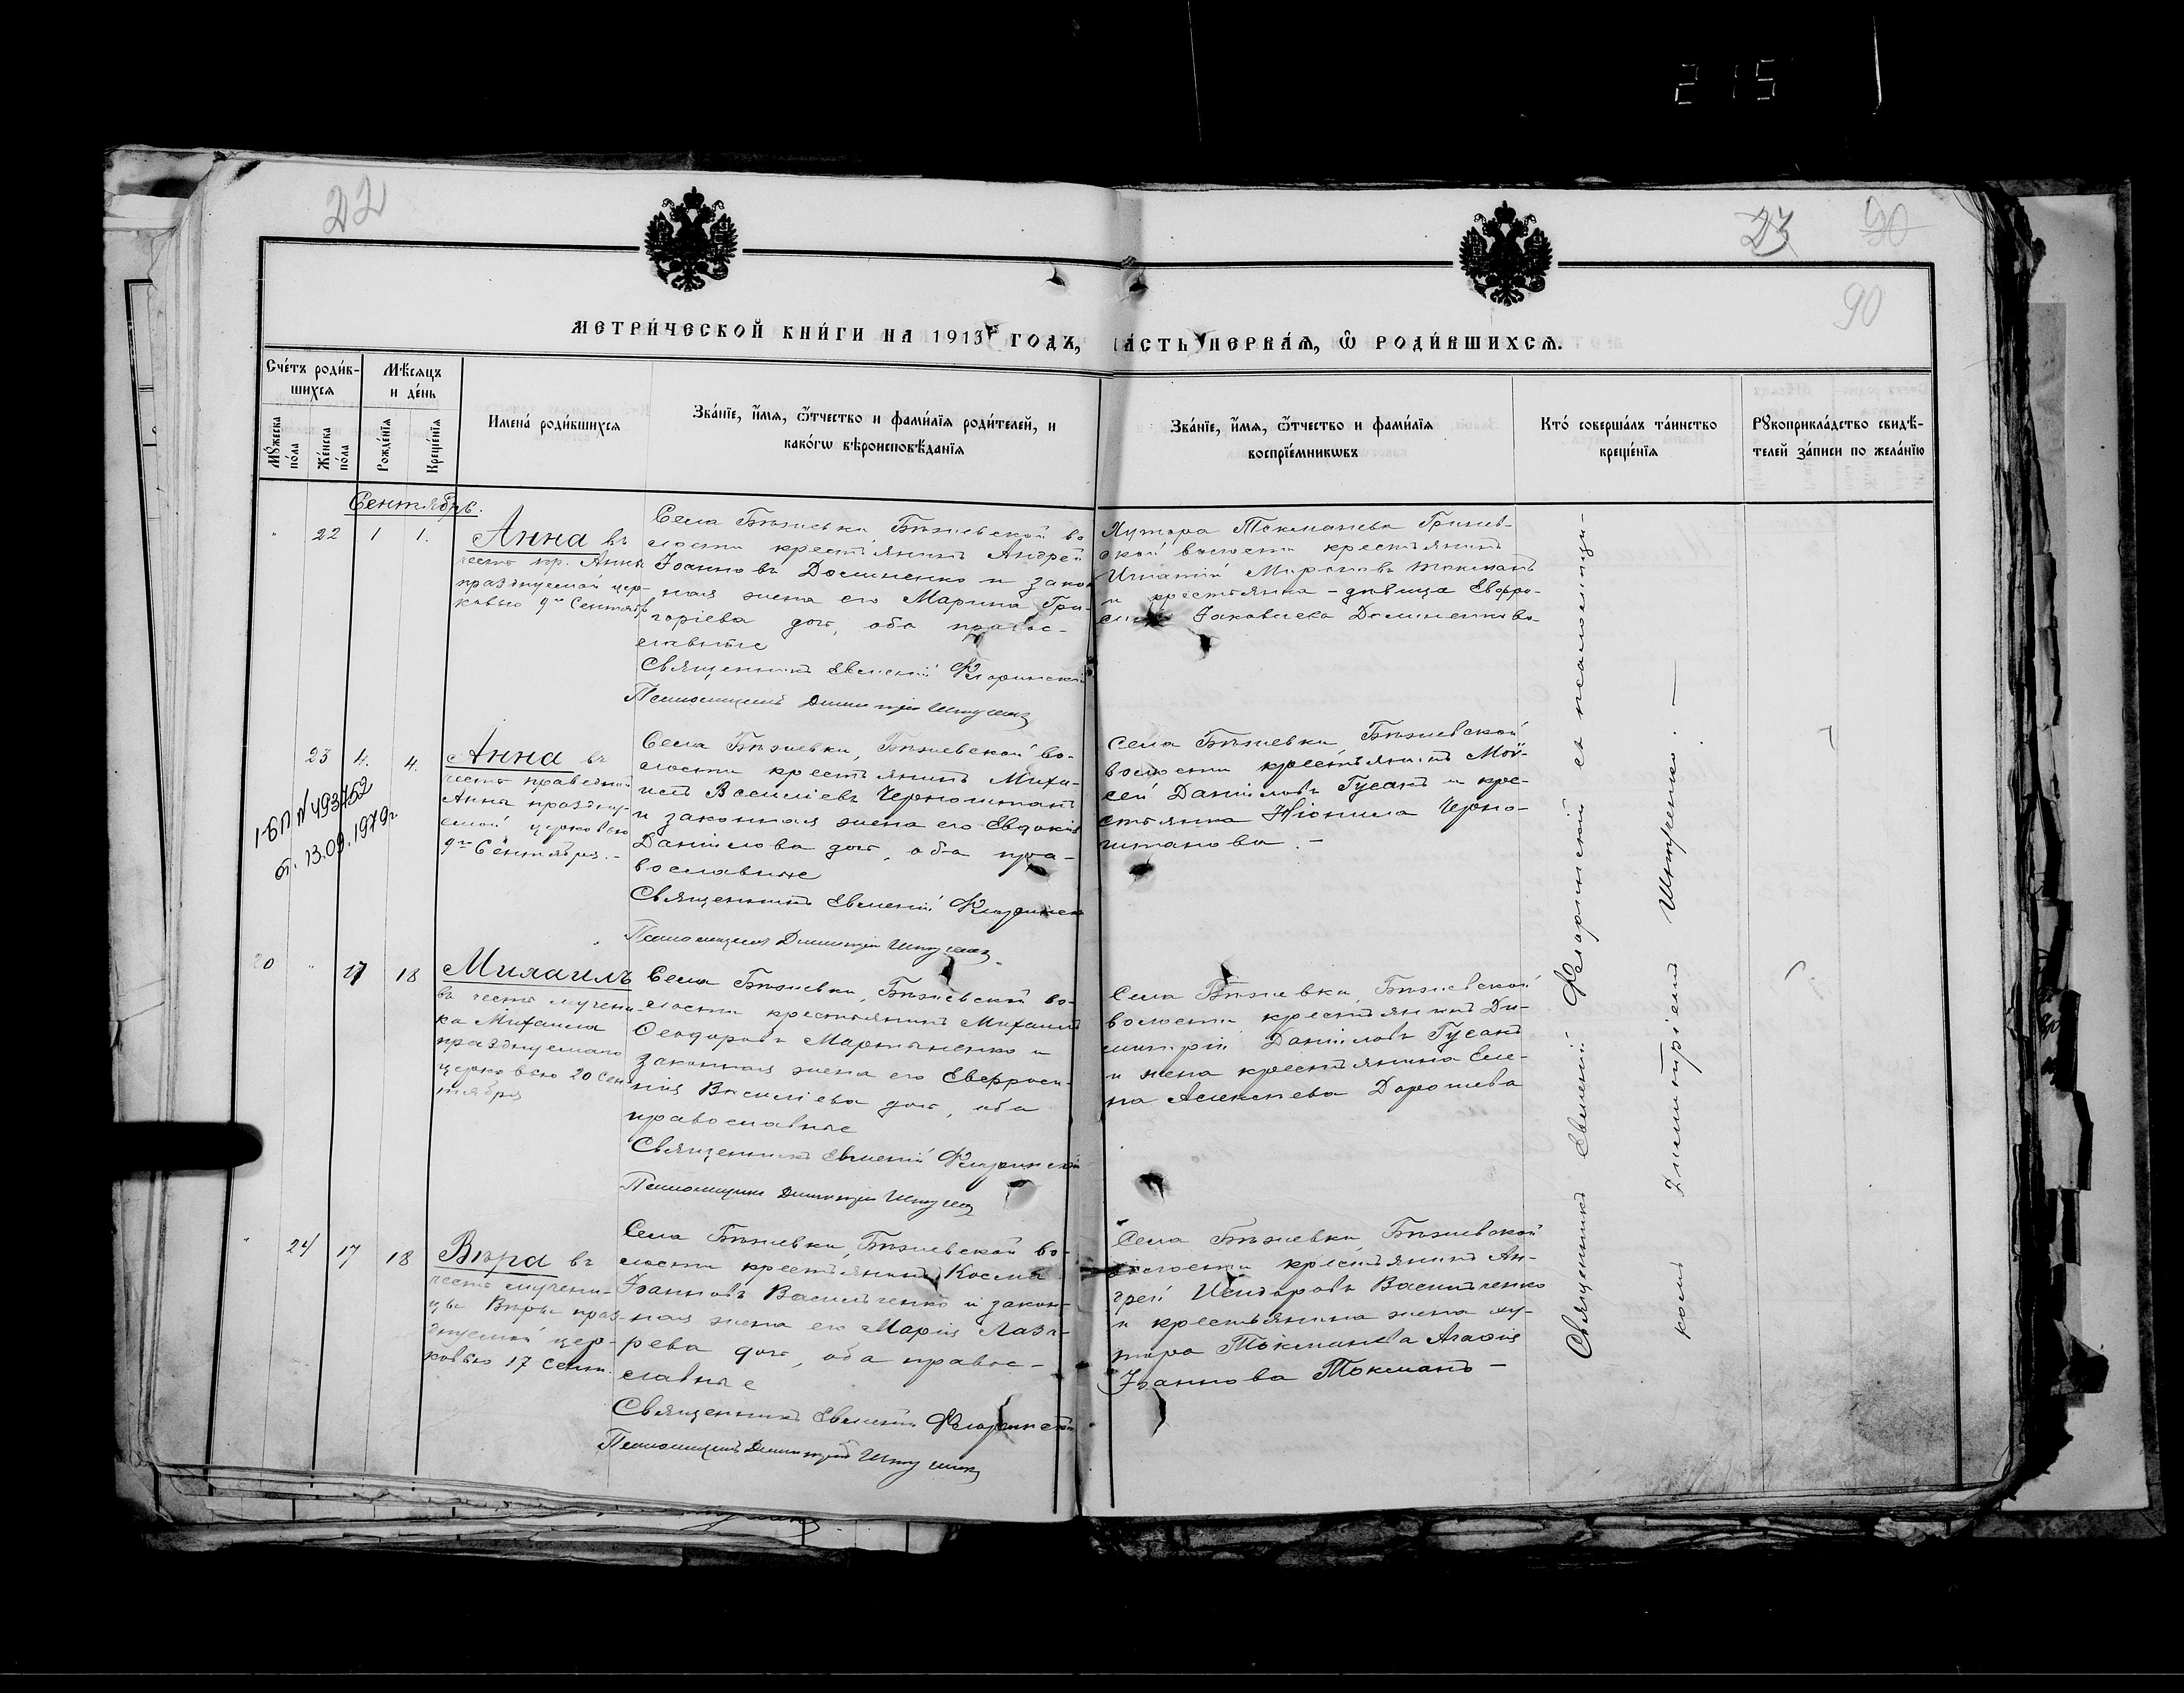 215
22
23 90
90
МЕТРИ́ЧЕСКОЙ КНИ́ГИ НА 1913 ГОДЪ, ЧАСТЬ ПЕРВАѦ, Ѡ РОДИ́ВШИХСѦ.
Сче́тъ роди́в-
шихсѧ
Мꙋ́жеска по́ла
Же́нска по́ла
Мѣ́сѧцъ
и де́нь
Рожде́нїѧ
Креще́нїѧ
Имена́ роди́вшихсѧ
Зва́нїе, и҆́мѧ, ѻ҆́тчество и фами́лїѧ роди́телей, и
како́гѡ вѣроисповѣ́данїѧ
Зва́нїе, и҆́мѧ, ѻ҆́тчество и фами́лїѧ
воспрїе́мникѡвъ
Кто́ соверша́лъ та́инство
креще́нїѧ
Рꙋкоприкла́дство свидѣ́-
телей за́писи по жела́нїю
Сентябрь.
22 1 1.
Анна въ
честь пр. Анны
празднуемой цер-
ковью 9го Сентябр
Села Бѣжевки, Бѣжевской во
лости крестьянинъ Андрей
Іоанновъ Доминенко и закон
ная жена его Марина Гри-
горіева дочь, оба правос-
лавные
Священникъ Евменій Флоринскій
Псаломщикъ Димитрій
Хутора Токманева
ской волости крестьянинъ
Игнатій Мироновъ Токманъ
и крестьянка - дѣвица Евфро-
Іаковлева Доминенкова
23 4. 4.
1-БП № 493752
от. 13.09.1979г.
Анна въ
честь праведной
Анны праздну-
емой церковью
9го Сентября.-
Села Бѣжевки, Бѣжевской во-
лости крестьянинъ Миха-
илъ Василіевъ Черноштанъ
и законная жена его Евдокія
Даніилова дочь, оба пра-
вославные
Священникъ Евменій Флоринскій
Псаломщикъ Димитрій
Села Бѣжевки, Бѣжевской
волости крестьянинъ Мой-
сей Даніиловъ Гусакъ и кре-
стьянка Неонила Черно-
штанова. -
20 " 17 18
Михаилъ
въ честь мучени-
ка Михаила
празднуемаго
церковью 20 Сен
тября
Села Бѣжевки, Бѣжевской во-
лости крестьянинъ Михаилъ
Ѳеодоровъ Мартыненко и
законная жена его Евфроси-
нія Василіева дочь, оба
православные
Священникъ Евменій Флоринскій
Псаломщикъ Димитрій
Села Бѣжевки, Бѣжевской
волости крестьянинъ Ди-
митрій Даніиловъ Гусакъ
и жена крестьянина Еле-
на Алексѣева Дорошева
" 24 17 18
Вѣра въ
честь мучени-
цы Вѣры праз-
днуемой цер-
ковью 17 Сент.
Села Бѣжевки, Бѣжевской во-
лости крестьянинъ Косма
Іоанновъ Васильченко и закон-
ная жена его Марія Лаза-
рева дочь, оба правос-
лавные
Священникъ Евменій Флоринскій
Псаломщикъ Димитрій
Села Бѣжевки Бѣжевской
волости крестьянинъ Ан-
дрей Исидоровъ Васильченко
и крестьянина жена ху-
тора Токманева Агафія
Іоаннова Токманъ -
Священникъ Евменій Флоринскій съ псаломщи-
комъ Димитріемъ -